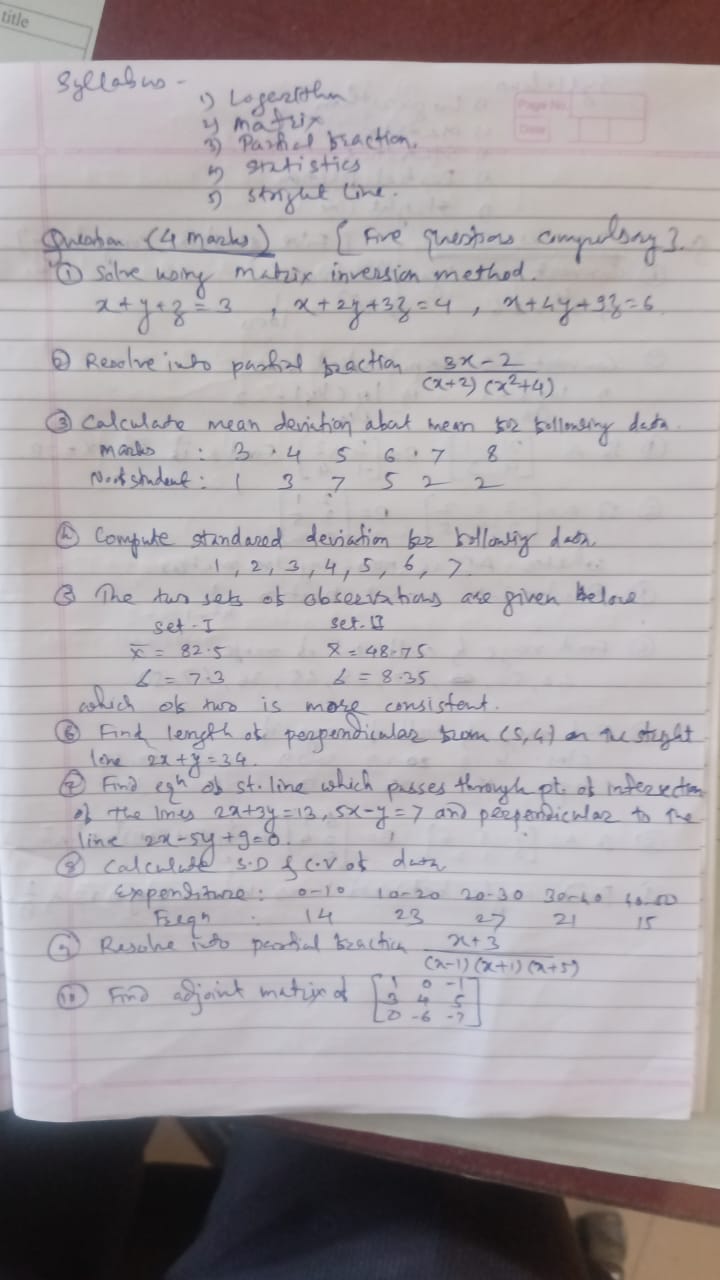 title
Syllabus -
1) Logarithm
2) Matrix
3) Partial fraction.
4) Statistics
5) Stright line.
Page No.
Date
Question (4 marks) [Five questions compulsory].
① Solve using matrix inversion method.
x+y+z=3 , x+2y+3z=4 , x+4y+9z=6
② Resolve into partial fraction 3x-2 / (x+2)(x²+4)
③ Calculate mean deviation abut mean for following data.
marks : 3 4 5 6 7 8
No of student : 1 3 7 5 2 2
④ Compute standared deviation for following data.
1, 2, 3, 4, 5, 6, 7
⑤ The two sets of observations are given below
set-I set-II
x̄ = 82.5 x̄ = 48.75
σ = 7.3 σ = 8.35
which of two is more consistent.
⑥ Find length of perpendicular from (5,4) on the stright
line 2x+y=34.
⑦ Find eqn of st. line which passes through pt. of intersection
of the lines 2x+3y=13, 5x-y=7 and perpendicular to the
line 2x-5y+9=0.
⑧ Calculate S.D & C.V of data
Expenditure : 0-10 10-20 20-30 30-40 40-50
Freqn : 14 23 27 21 15
⑨ Resolve into partial fraction x+3 / (x-1)(x+1)(x+5)
⑩ Find adjoint matrix of [1 0 -1
3 4 5
0 -6 -7]